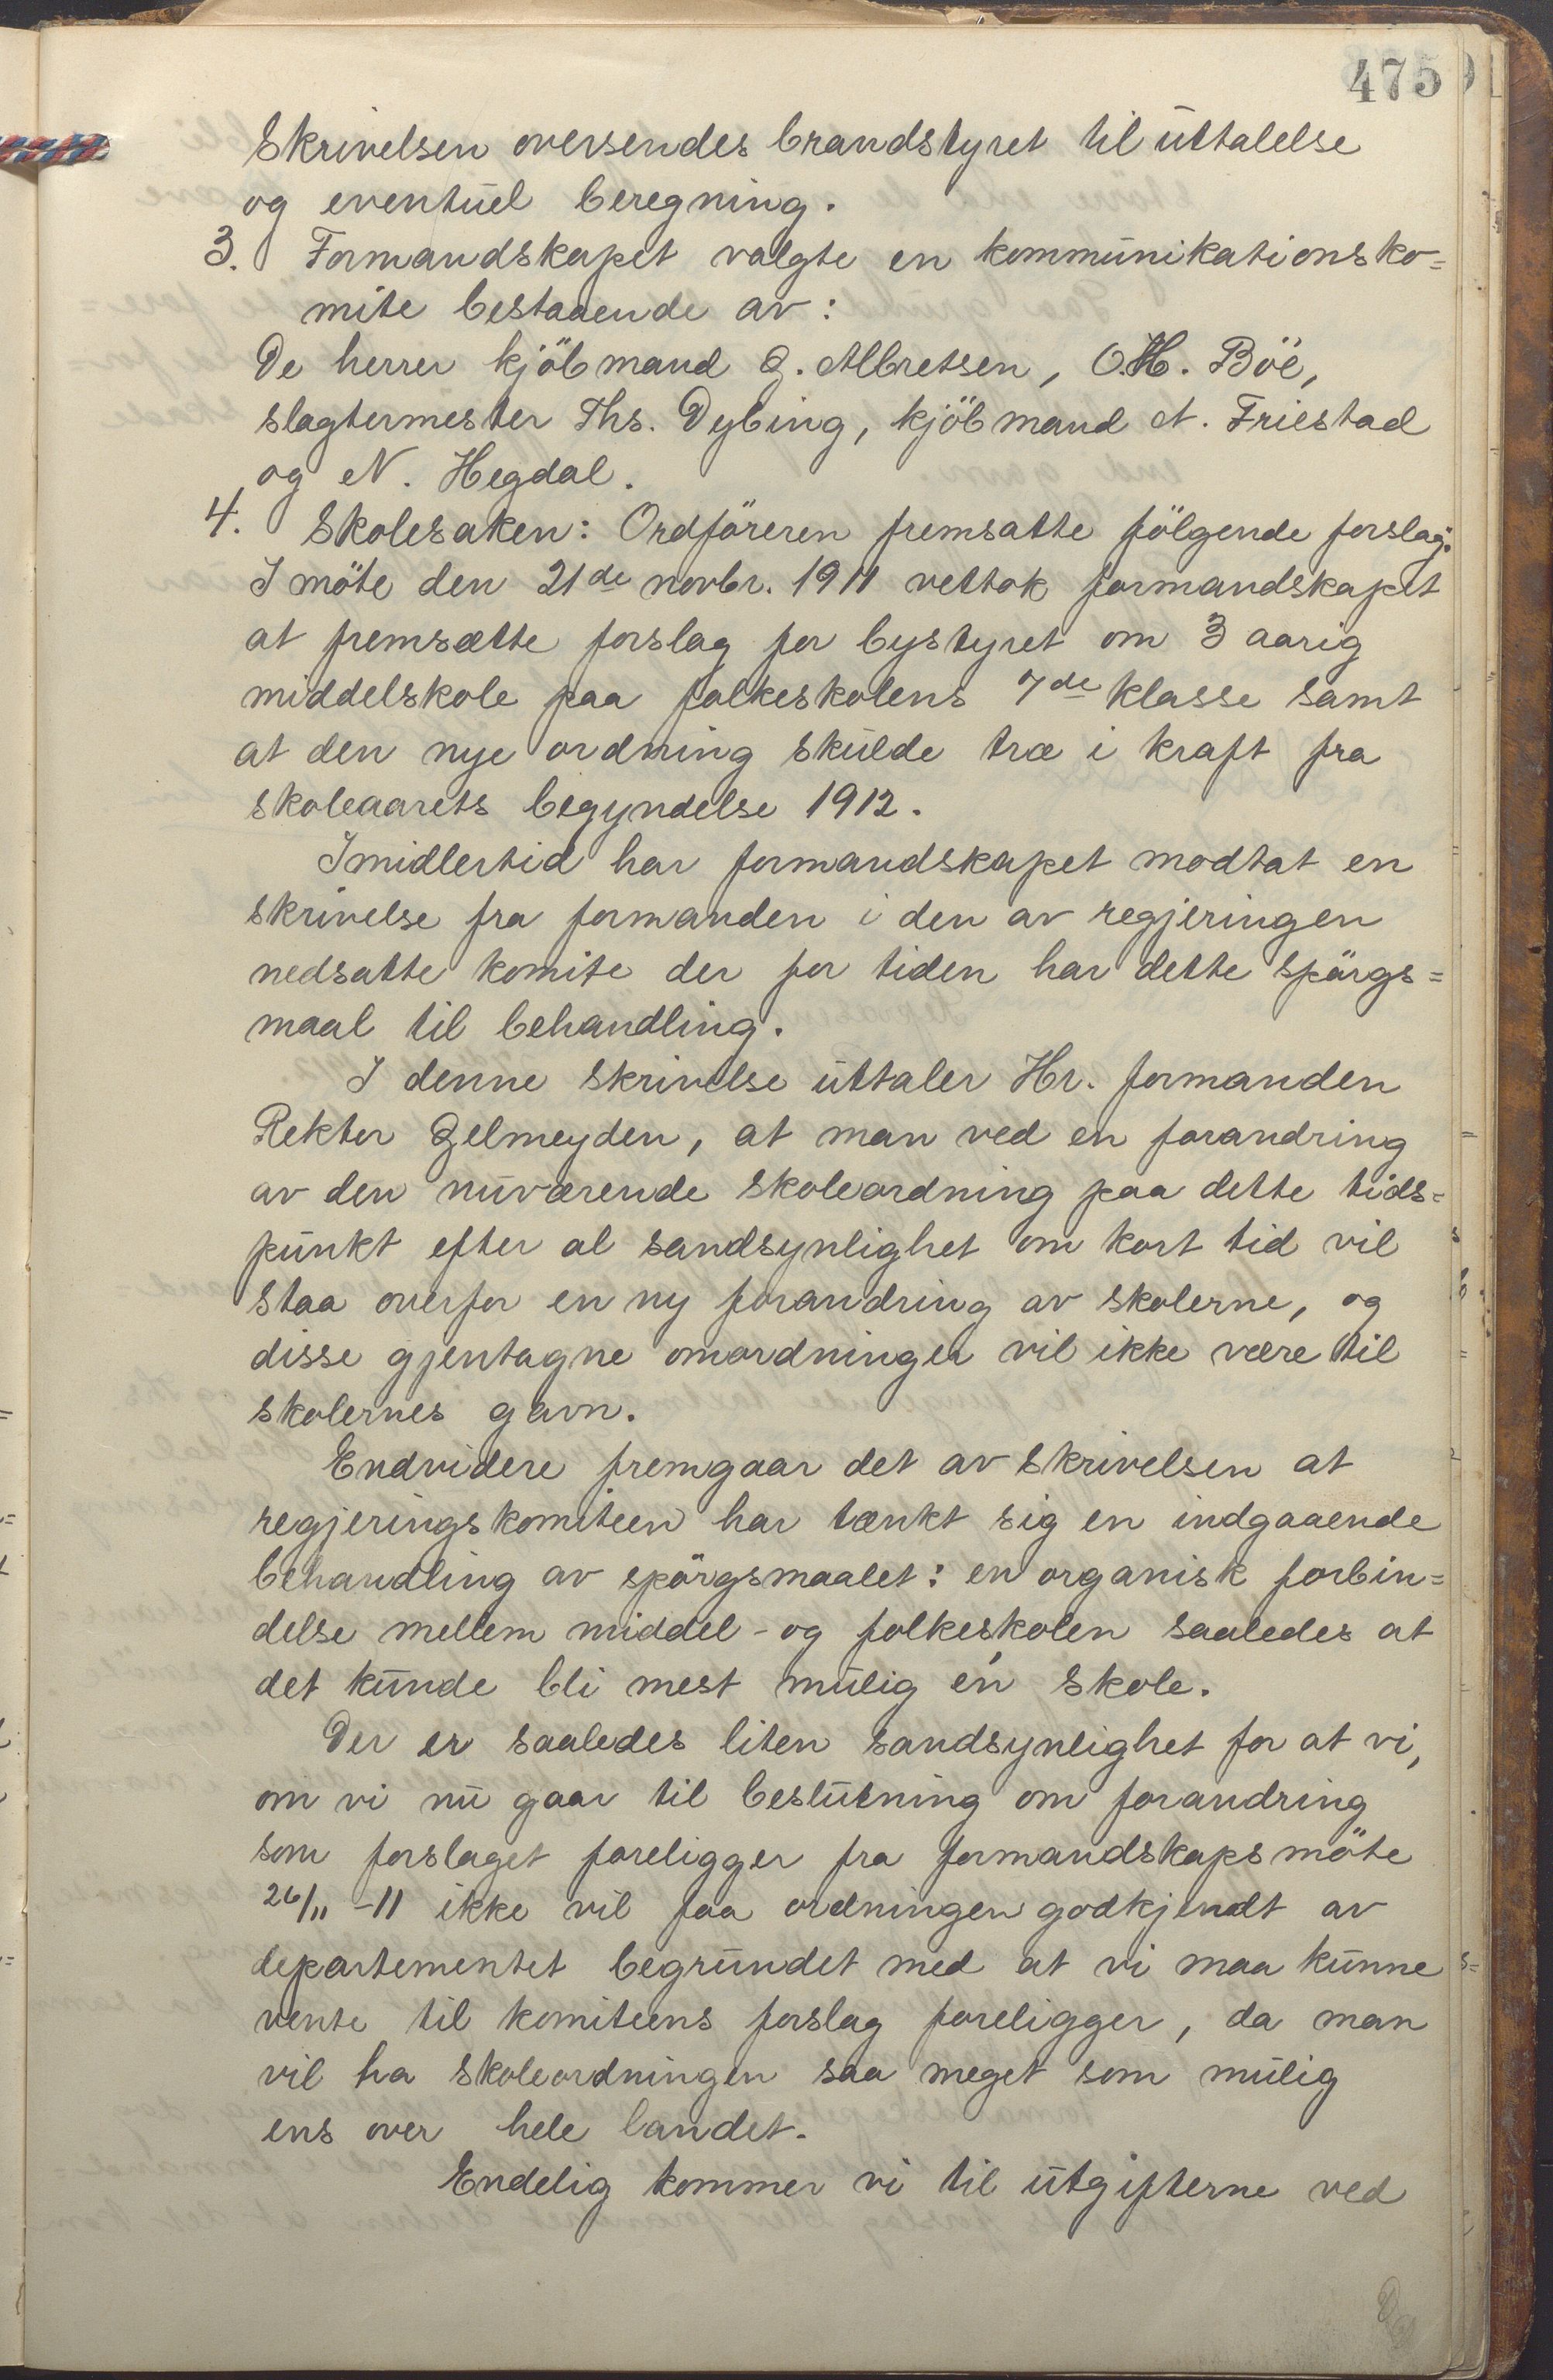 475
Skrivelsen oversendes brandstyret til uttalelse
og eventuel beregning.
3. Formandskapet valgte en kommunikationsko=
mite bestaaende av:
De herrer kjöbmand G. Albretsen, O.H. Böe,
slagtermester Ths. Dybing, kjöbmand A. Friestad
og N. Hegdal.
4. Skolesaken: Ordföreren fremsatte fölgende forslag:
I möte den 21de novbr. 1911 vettok formandskapet
at fremsætte forslag for bystyret om 3 aarig
middelskole paa folkeskolens 7de klasse samt
at den nye ordning skulde træ i kraft fra
skoleaarets begyndelse 1912.
Imidlertid har formandskapet modtat en
skrivelse fra formanden i den av regjeringen
nedsatte komite der for tiden har dette spörgs=
maal til behandling.
I denne skrivelse uttaler Hr. formanden
Rektor Gelmeyden, at man ved en forandring
av den nuværende skoleordning paa dette tids=
punkt efter al sandsynlighet om kort tid vil
staa overfor en ny forandring av skolerne, og
disse gjentagne omordninger vil ikke være til
skolernes gavn.
Endvidere fremgaar det av skrivelsen at
regjeringskomiteen har tænkt sig en indgaaende
behandling av spörgsmaalet: en organisk forbin=
delse mellem middel- og folkeskolen saaledes at
det kunde bli mest mulig én skole.
Der er saaledes liten sandsynlighet for at vi,
om vi nu gaar til beslutning om forandring
som forslaget foreligger fra formandskapsmöte
26/11 -11 ikke vil faa ordningen godkjendt av
departementet begrundet med at vi maa kunne
vente til komiteens forslag foreligger, da man
vil ha skoleordningen saa meget som mulig
ens over hele landet.
Endelig kommer vi til utgifterne ved